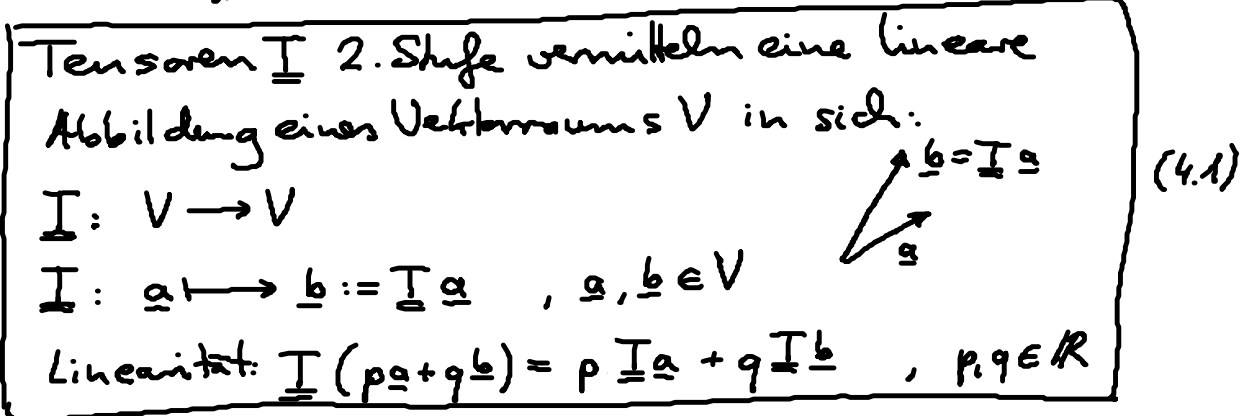 Tensoren T̲̲ 2. Stufe vermitteln eine lineare
Abbildung eines Vektorraums V in sich:
b̲ = T̲̲ a̲
a̲
(4.1)
T̲̲: V → V
T̲̲: a̲ ↦ b̲ := T̲̲ a̲ , a̲, b̲ ∈ V
Linearität: T̲̲ (pa̲ + qb̲) = p T̲̲a̲ + q T̲̲b̲ , p, q ∈ ℝ